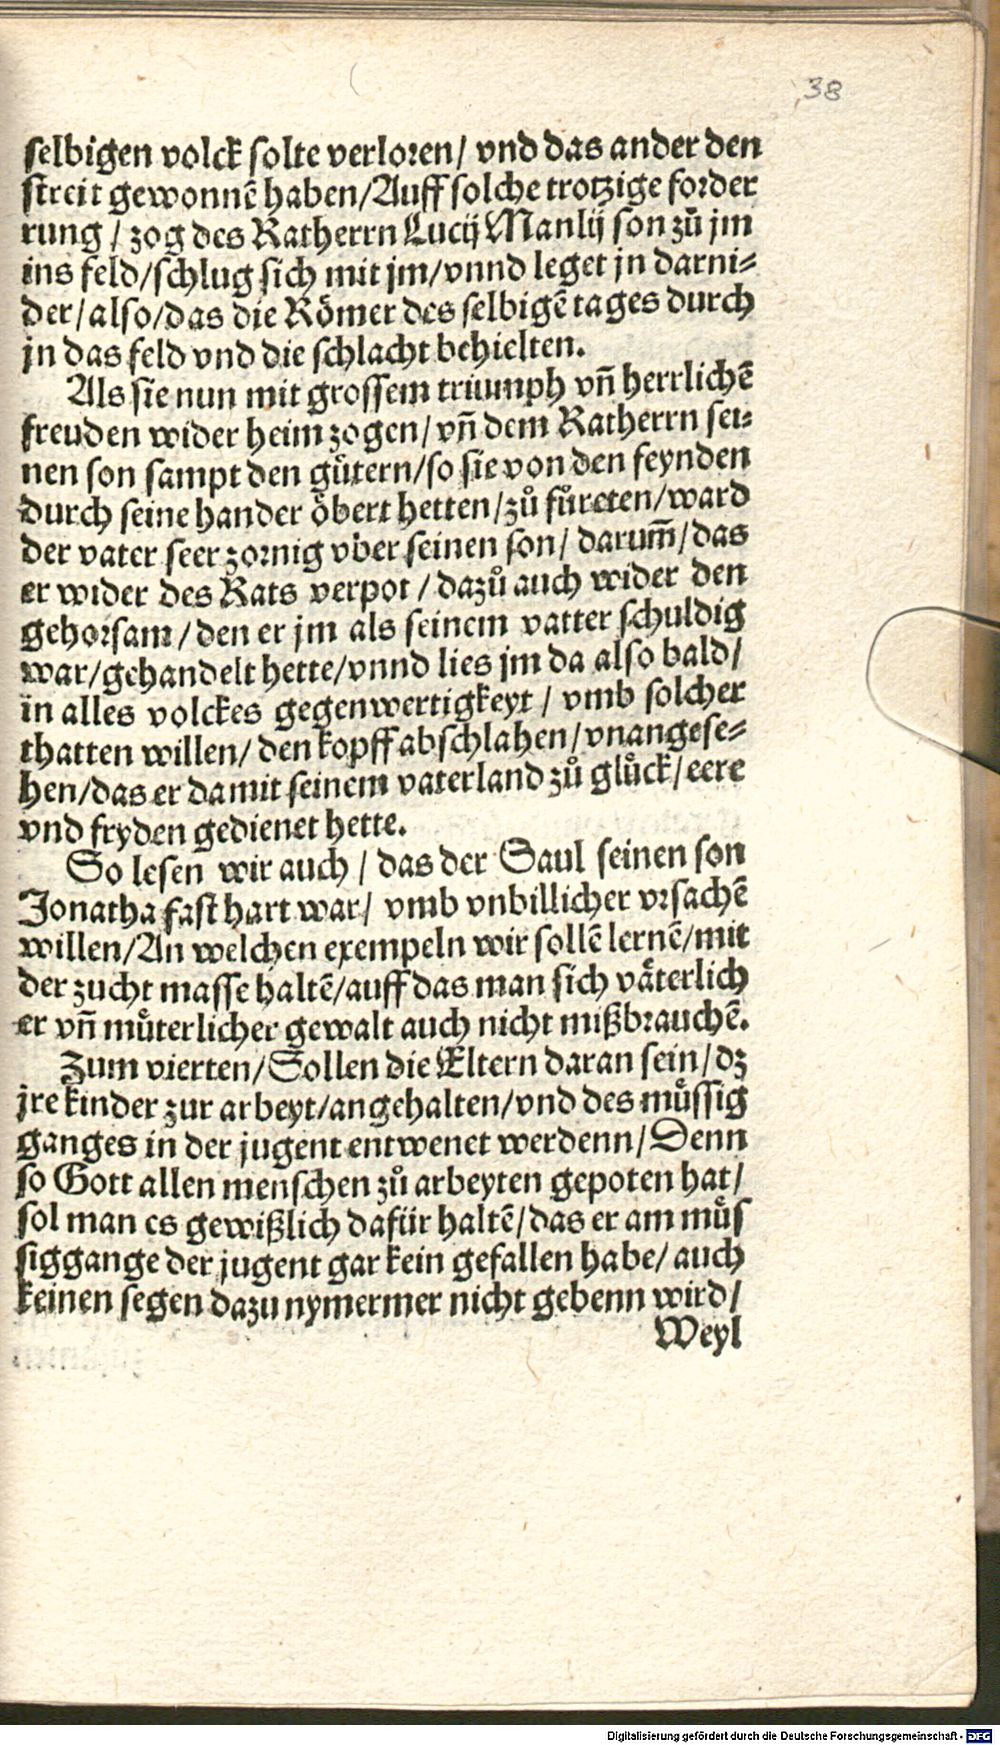 38
selbigen volck solte verloren/ vnd das ander den
streit gewonnē haben/Auff solche trotzige forder
rung / zog des Ratherrn Lucij Manlij son zů jm
ins feld/schlug sich mit jm/vnnd leget jn darni-
der/also/das die Römer des selbigē tages durch
jn das feld vnd die schlacht behielten.
Als sie nun mit grossem triumph vñ herrlichē
freuden wider heim zogen/vñ dem Ratherrn sei-
nen son sampt den gůtern/so sie von den feynden
durch seine hander öbert hetten/zů fůreten/ward
der vater seer zornig vber seinen son/ darum̄/das
er wider des Rats verpot / dazů auch wider den
gehorsam/den er jm als seinem vatter schuldig
war/gehandelt hette/vnnd lies jm da also bald/
in alles volckes gegenwertigkeyt / vmb solcher
thatten willen/ den kopff abschlahen/vnangese-
hen/das er damit seinem vaterland zů glück/eere
vnd fryden gedienet hette.
So lesen wir auch / das der Saul seinen son
Jonatha fast hart war/ vmb vnbillicher vrsachē
willen/An welchen exempeln wir sollē lernē/mit
der zucht masse haltē/auff das man sich väterlich
er vñ můterlicher gewalt auch nicht mißbrauchē.
Zum vierten/Sollen die Eltern daran sein/dz
jre kinder zur arbeyt/angehalten/vnd des müssig
ganges in der jugent entwenet werdenn/Denn
so Gott allen menschen zů arbeyten gepoten hat/
sol man es gewißlich dafür haltē/das er am müs
siggange der jugent gar kein gefallen habe/auch
keinen segen dazu nymermer nicht gebenn wird/
Weyl
Digitalisierung gefördert durch die Deutsche Forschungsgemeinschaft - DFG